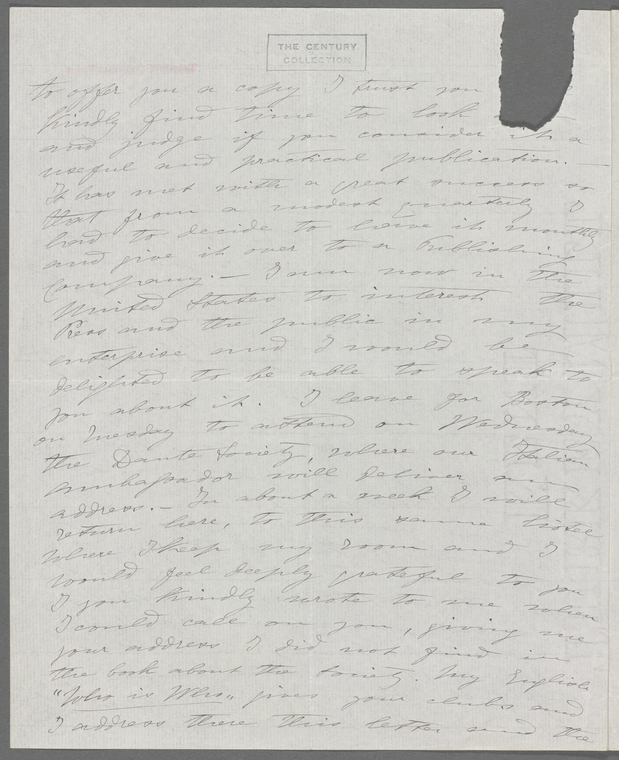 THE CENTURY
COLLECTION
to offer you a copy I trust you
kindly find time to look
and judge if you consider it a
useful and practical publication. —
It has met with a great success so
that from a modest quarterly I
had to decide to leave it monthly
and give it over to a Publishing
Company. — I am now in the
United States to interest the
Press and the public in my
enterprise and I would be
delighted to be able to speak to
you about it. I leave for Boston
on Tuesday to attend on Wednesday
the Dante Society, where our Italian
Ambassador will deliver an
address. — In about a week I will
return here, to this same hotel
where I keep my room and I
would feel deeply grateful to you
I you kindly wrote to me when
I could call on you, giving me
your address I did not find in
the book about the Society. My English
"Who is Who" gives your clubs and
I address there this letter and the